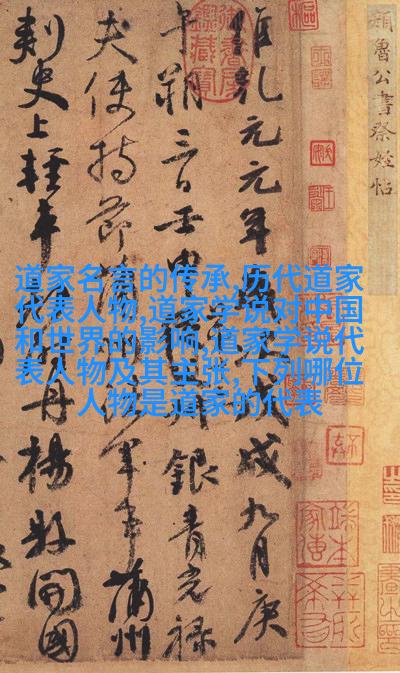 道家名言的传承,历代道家
代表人物,道家学说对中国
和世界的影响,道家学说代
表人物及其主张,下列哪位
人物是道家的代表
顏魯公書祭姪帖
維乾元元年歲次戊戌九月庚
午朔三日壬申銀青光祿
夫使持節蒲州諸軍事蒲州
刺史上輕車都尉丹楊縣開國